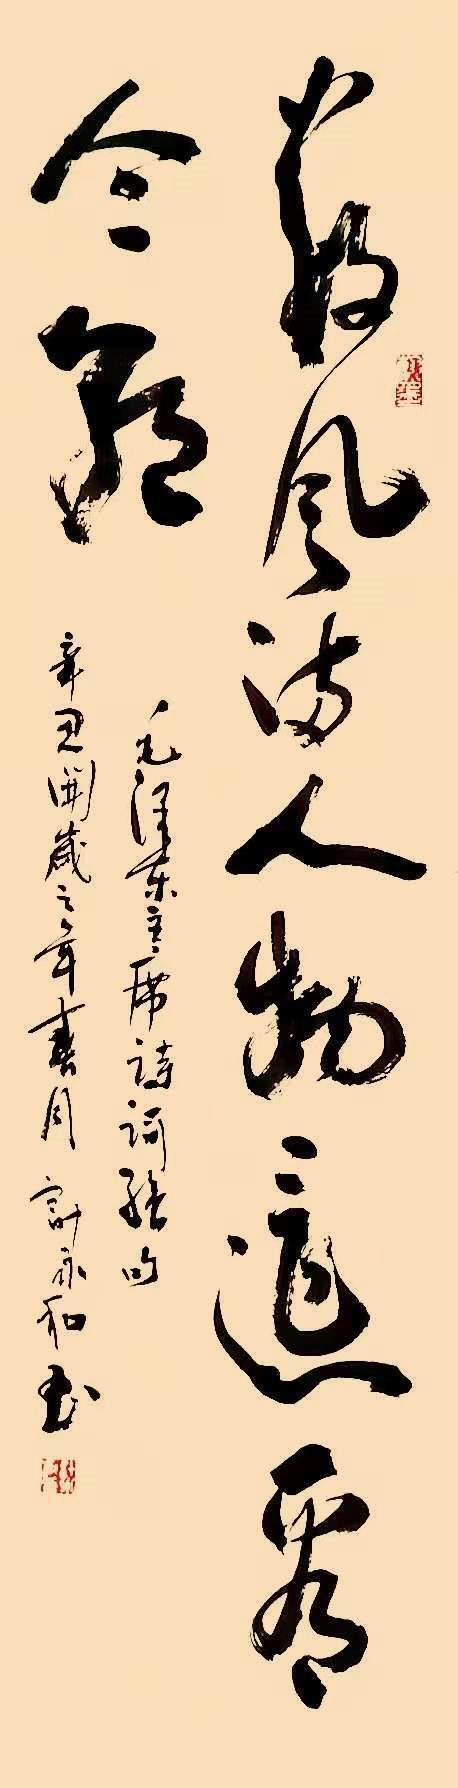 数风流人物还看
今朝
毛泽东主席诗词练句
辛丑开岁之年春月 计永和书